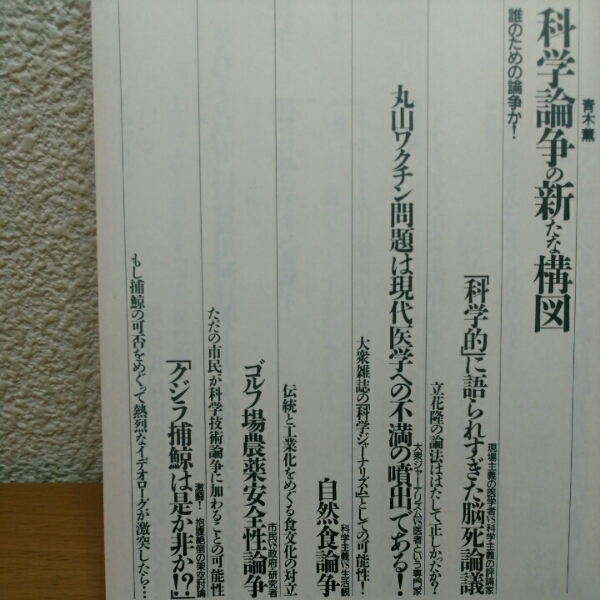 科学論争の新たな構図
青木薫
誰のための論争か!
「科学的」に語られすぎた脳死論議
現場主義の医学者vs.科学主義の評論家
立花隆の論法ははたして正しかったか?
丸山ワクチン問題は現代医学への不満の噴出である!
大衆ジャーナリズムvs.医者という専門家
大衆雑誌の「科学ジャーナリズム」としての可能性!
自然食論争
科学主義vs.生活観
伝統と工業化をめぐる食文化の対立
ゴルフ場農薬安全性論争
市民vs.政府・研究者
ただの市民が科学技術論争に加わることの可能性
「クジラ捕鯨は是か非か!?」
激闘! 抱腹絶倒の架空討論
もし捕鯨の可否をめぐって熱烈なイデオローグが激突したら…